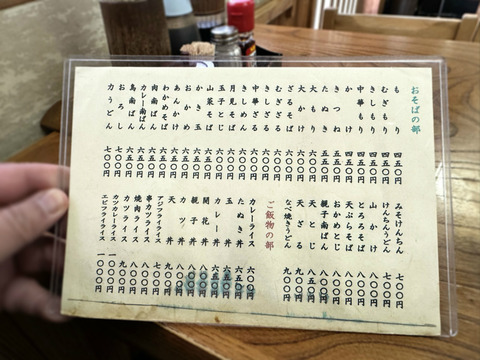 おそばの部
もり 四五〇円
むぎもり 四五〇円
きしもり 四五〇円
中華もり 四五〇円
かけ 四五〇円
きつね 五五〇円
たぬき 五五〇円
大もり 六〇〇円
大かけ 六〇〇円
ざるそば 六〇〇円
むぎざる 六〇〇円
きしざる 六〇〇円
中華ざる 六〇〇円
きしめん 六〇〇円
月見そば 六〇〇円
玉子とじ 六五〇円
山菜そば 六五〇円
かき玉 六五〇円
あんかけ 六五〇円
わかめそば 六五〇円
肉南ばん 六五〇円
カレー南ばん 六五〇円
鳥南ばん 六五〇円
おろし 七〇〇円
力うどん 七〇〇円
みそけんちん 七〇〇円
けんちんうどん 七〇〇円
山かけ 八〇〇円
とろろそば 八〇〇円
天ぷらそば 八〇〇円
おかめとじ 八〇〇円
親子南ばん 八五〇円
天とじ 八〇〇円
天ざる 九〇〇円
なべ焼きうどん 九〇〇円
ご飯物の部
カレーライス 六〇〇円
たぬき丼 六五〇円
玉丼 六五〇円
カレー丼 六五〇円
開花丼 八〇〇円
親子丼 八〇〇円
カツ丼 八〇〇円
天丼 九〇〇円
アジフライライス 七〇〇円
串カツライス 七〇〇円
焼肉ライス 八〇〇円
カツライス 九〇〇円
カツカレーライス 一〇〇〇円
エビフライライス 一〇〇〇円